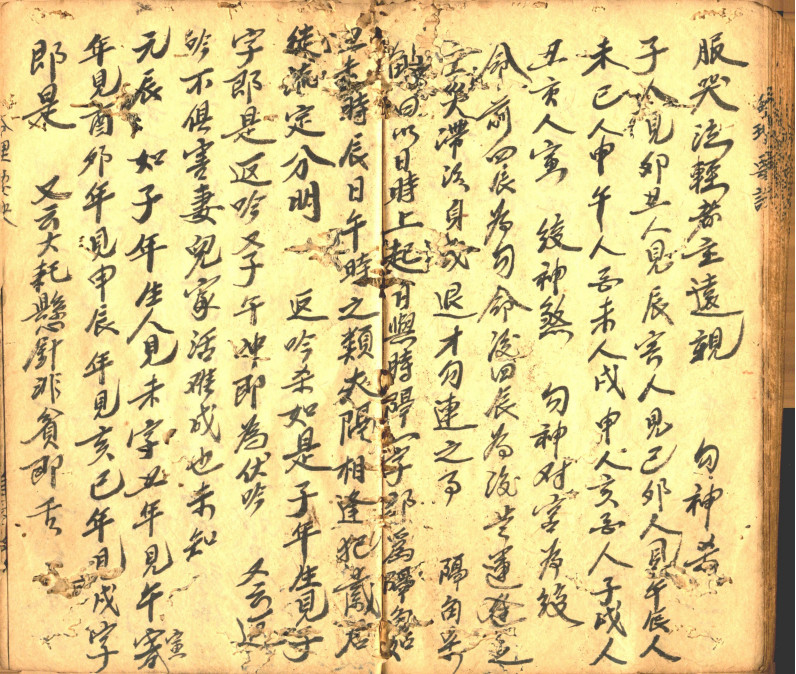 服哭泣輕者主遠親 勾神煞
子人見卯丑人見辰寅人見巳卯人見午辰人
未巳人申午人酉未人戌申人亥酉人子戌人
丑亥人寅 絞神煞 勾神对宮為絞
命前四辰為勾命後四辰為
災滯沒身或退才勾連之事 隔角煞
日以日時上起日與時隔一字即為隔角如
丑日時辰日午時之類夾隔相逢犯歲君
徒流定分明 返吟杀如是子年生見子
字即是返吟又子午冲即為伏吟 又云返
吟不俱害妻兒家活难成也未知
元辰 如子年生人見未字丑年見午寅
年見酉卯年見申辰年見亥巳年見戌字
即是 又云大耗懸針非貧即舌